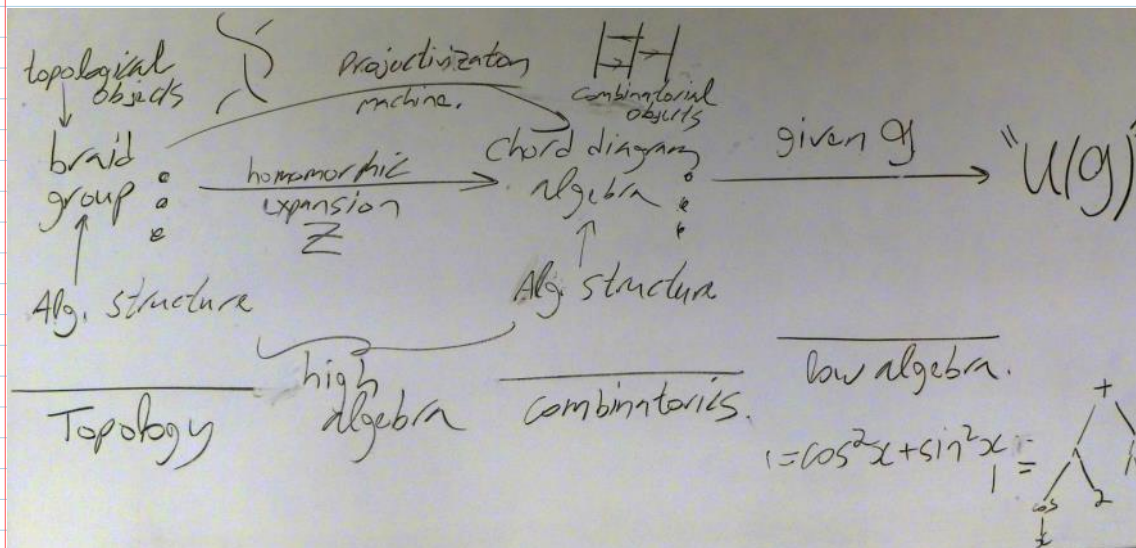 topological
objects
projectivization
machine.
combinatorial
objects
braid
group
homomorphic
expansion
Z
chord diagram
algebra
given g
"U(g)"
Alg. structure
Alg. structure
Topology
high
algebra
combinatorics.
low algebra.
1=cos²x+sin²x
1 =
+
cos
2
x